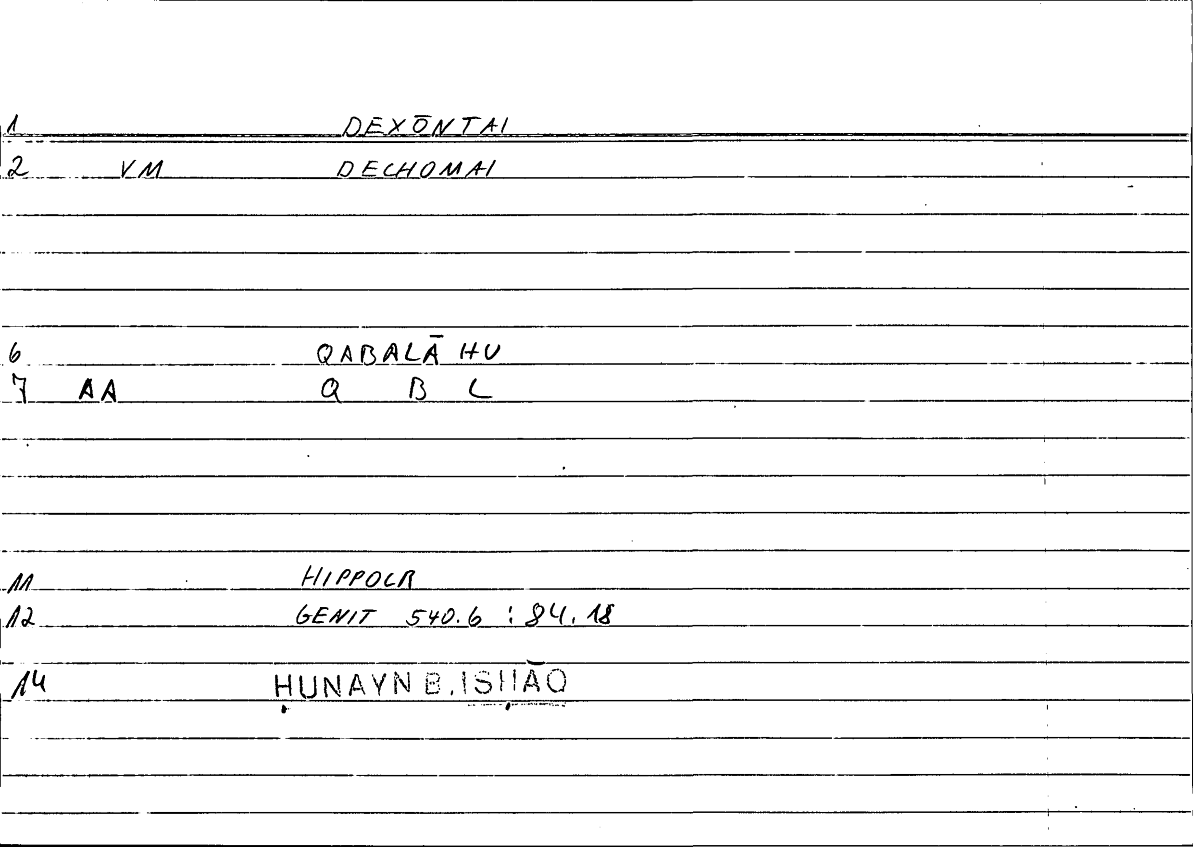 1 DEXŌNTAI
2 VM DECHOMAI
6 QABALĀ HU
7 AA Q B L
11 HIPPOCR
12 GENIT 540.6 : 84.18
14 ḤUNAYN B. ISḤĀQ